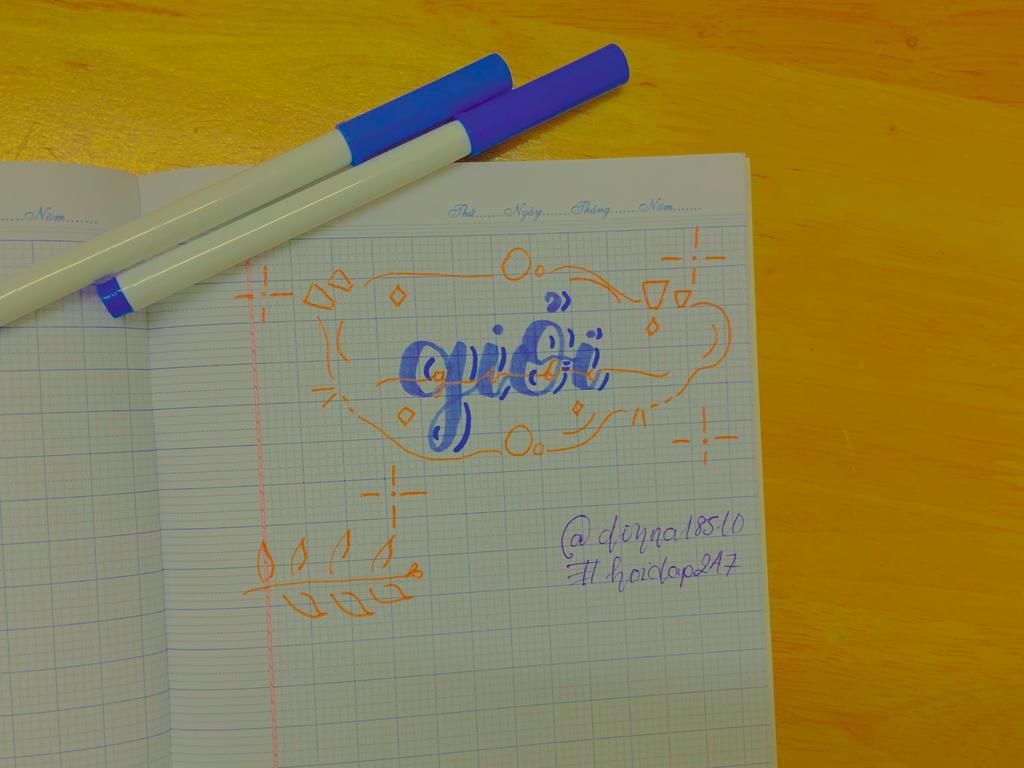 .....Năm.......
Thứ.......Ngày.......Tháng.......Năm.......
giỏi
@donna18510
#hoidap247